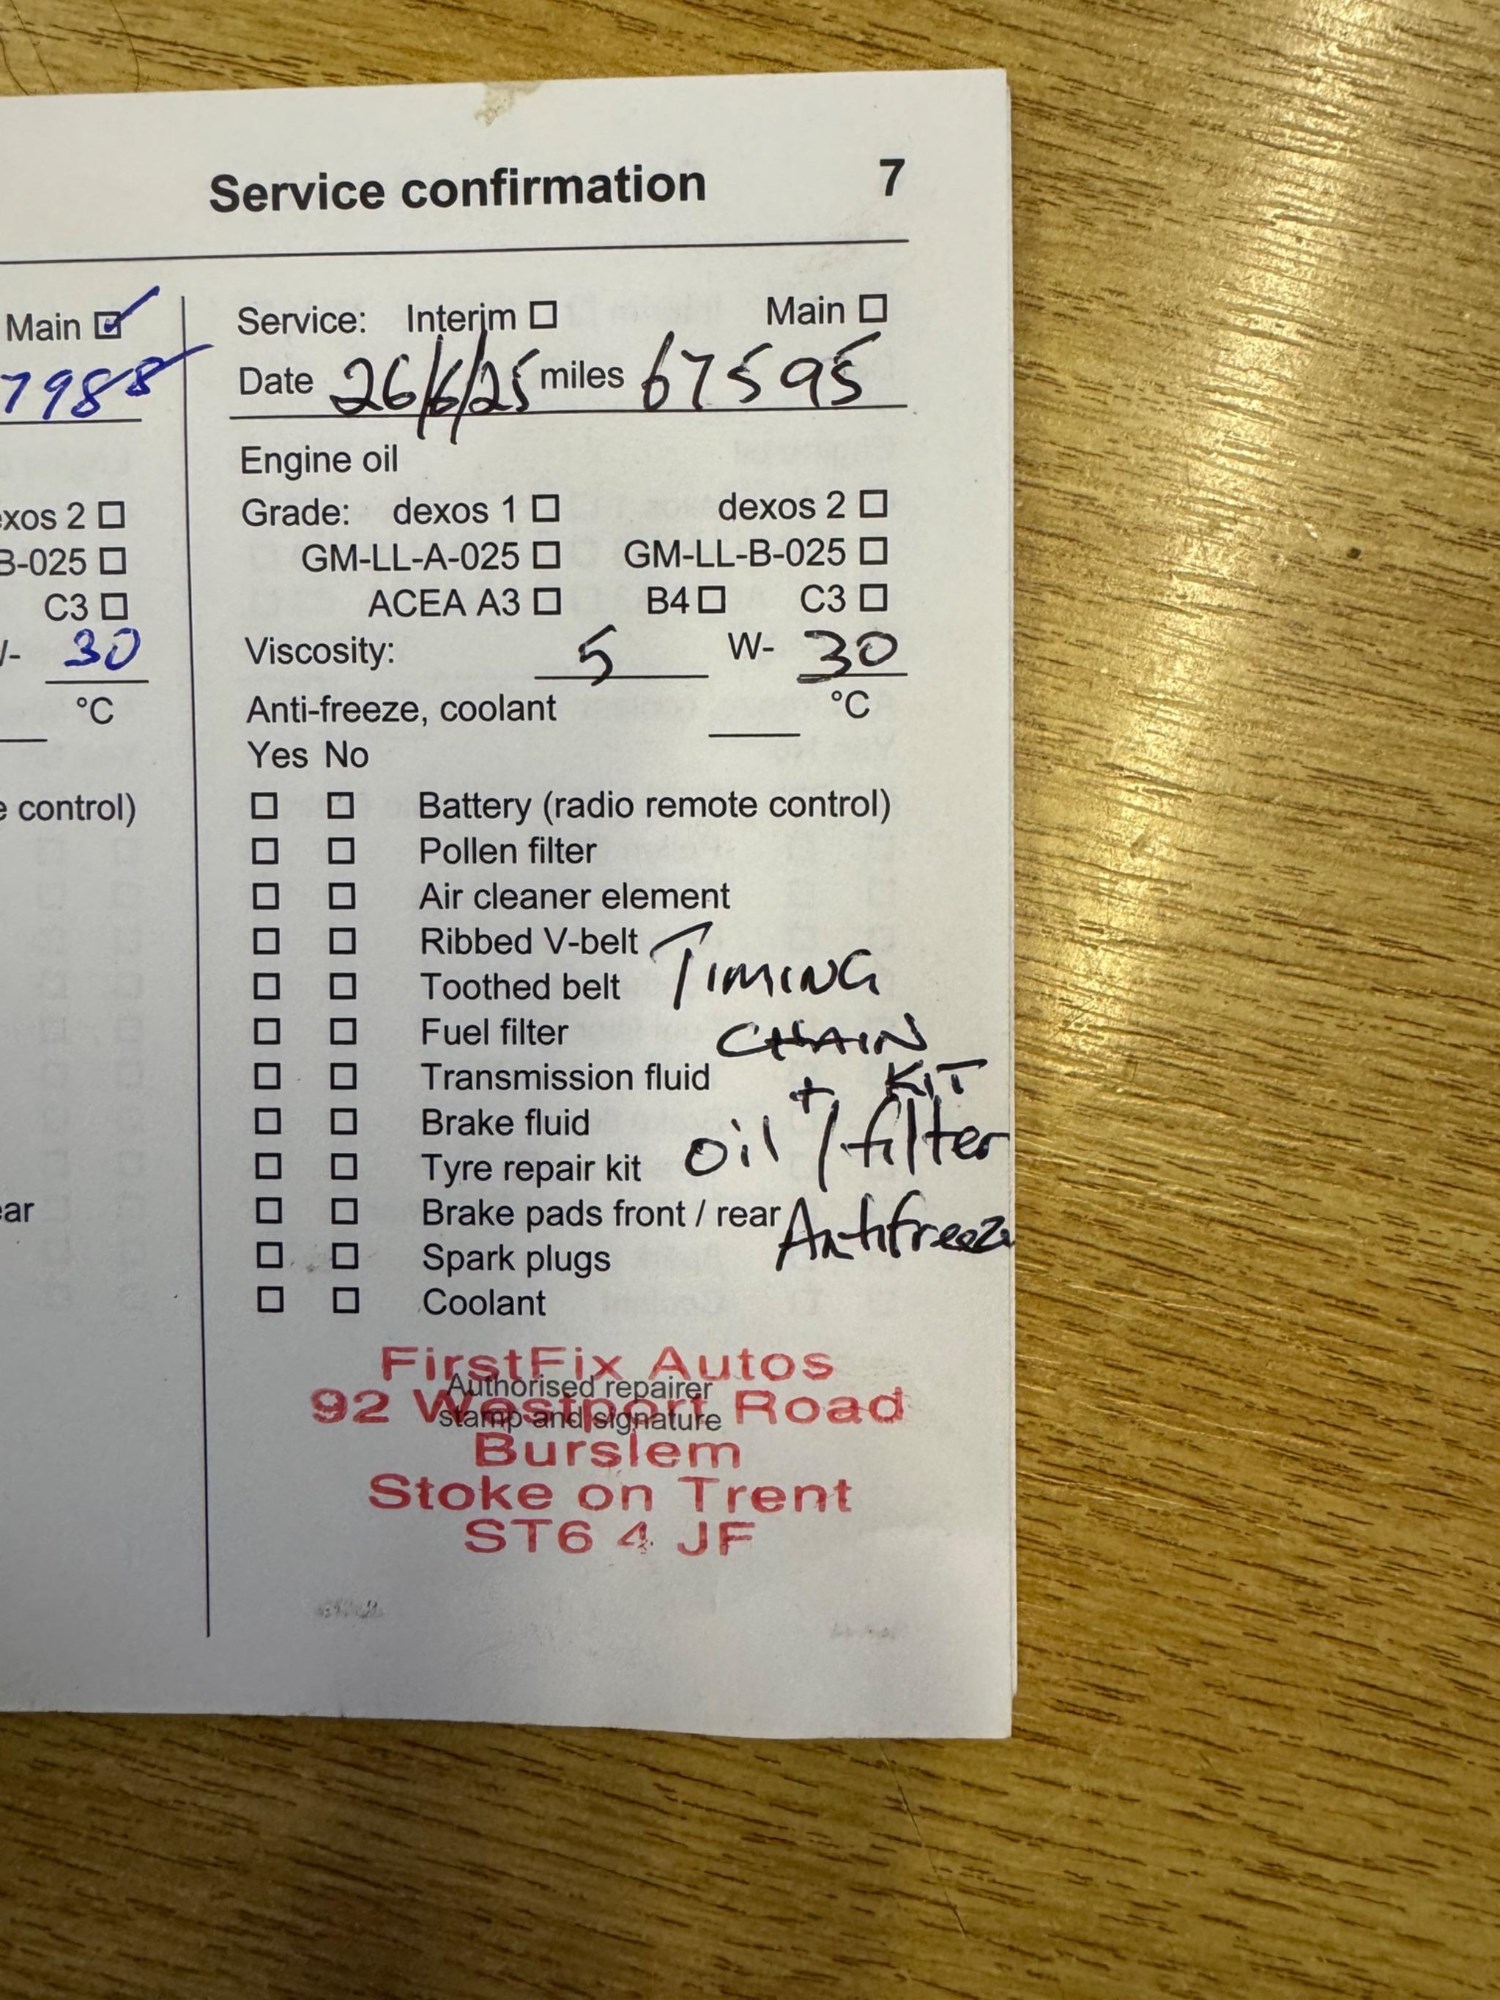 Service confirmation 7
Main
7988
xos 2
B-025
C3
30
°C
control)
ear
Service: Interim Main
Date 26/6/25 miles 67595
Engine oil
Grade: dexos 1 dexos 2
GM-LL-A-025 GM-LL-B-025
ACEA A3 B4 C3
Viscosity: 5 W- 30
Anti-freeze, coolant °C
Yes No
Battery (radio remote control)
Pollen filter
Air cleaner element
Ribbed V-belt
Toothed belt TIMING
Fuel filter CHAIN
Transmission fluid + KIT
Brake fluid
Tyre repair kit oil / filter
Brake pads front / rear Antifreeze
Spark plugs
Coolant
FirstFix Autos
Authorised repairer
92 Westport Road
stamp and signature
Burslem
Stoke on Trent
ST6 4 JF